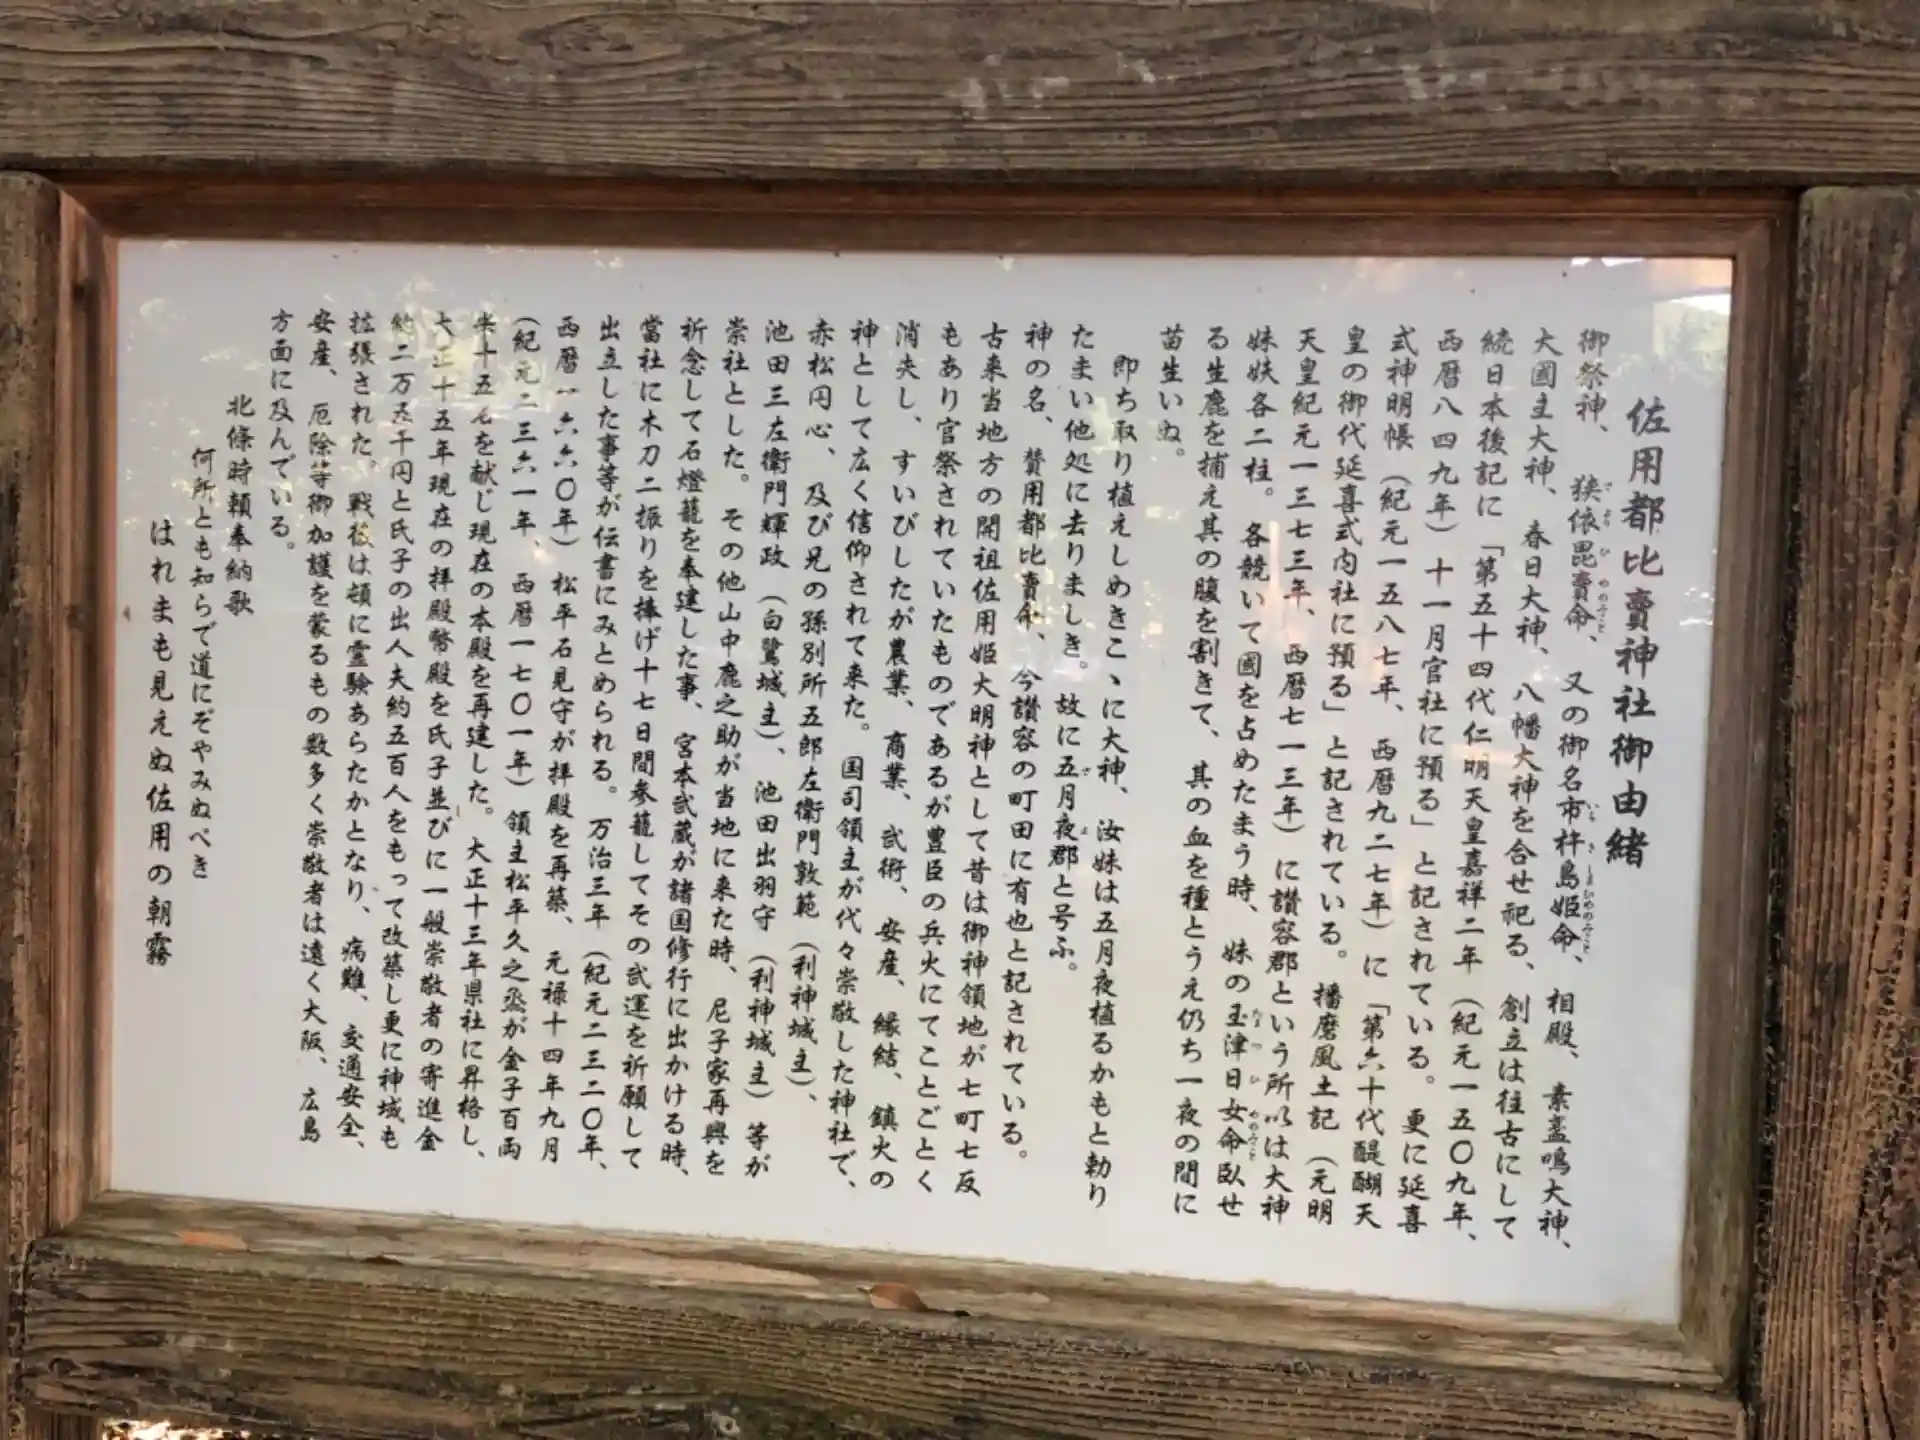 佐用都比賣神社御由緒
御祭神、狭依毘賣命、又の御名市杵島姫命、相殿、素盞鳴大神、
大國主大神、春日大神、八幡大神を合せ祀る、創立は往古にして
続日本後記に「第五十四代仁明天皇嘉祥二年(紀元一五〇九年、
西暦八四九年)十一月官社に預る」と記されている。更に延喜
式神明帳(紀元一五八七年、西暦九二七年)に「第六十代醍醐天
皇の御代延喜式内社に預る」と記されている。播磨風土記(元明
天皇紀元一三七三年、西暦七一三年)に讃容郡という所以は大神
妹妋各二柱。各競いて國を占めたまう時、妹の玉津日女命臥せ
る生鹿を捕え其の腹を割きて、其の血を種とうえ仍ち一夜の間に
苗生いぬ。
即ち取り植えしめきこゝに大神、汝妹は五月夜植るかもと勅り
たまい他処に去りましき。故に五月夜郡と号ふ。
神の名、賛用都比賣命、今讃容の町田に有也と記されている。
古来当地方の開祖佐用姫大明神として昔は御神領地が七町七反
もあり官祭されていたものであるが豊臣の兵火にてことごとく
消失し、すいびしたが農業、商業、武術、安産、縁結、鎮火の
神として広く信仰されて来た。国司領主が代々崇敬した神社で、
赤松円心、及び兄の孫別所五郎左衛門敦範(利神城主)、
池田三左衛門輝政(白鷺城主)、池田出羽守(利神城主)等が
崇社とした。その他山中鹿之助が当地に来た時、尼子家再興を
祈念して石燈籠を奉建した事、宮本武蔵が諸国修行に出かける時、
當社に木刀二振りを捧げ十七日間参籠してその武運を祈願して
出立した事等が伝書にみとめられる。万治三年(紀元二三二〇年、
西暦一六六〇年)松平石見守が拝殿を再築、元禄十四年九月
(紀元二三六一年、西暦一七〇一年)領主松平久之丞が金子百両
米十五石を献じ現在の本殿を再建した。大正十三年県社に昇格し、
大正十五年現在の拝殿幣殿を氏子並びに一般崇敬者の寄進金
約二万五千円と氏子の出人夫約五百人をもって改築し更に神域も
拡張された。戦後は頓に霊験あらたかとなり、病難、交通安全、
安産、厄除等御加護を蒙るもの数多く崇敬者は遠く大阪、広島
方面に及んでいる。
北條時頼奉納歌
何所とも知らで道にぞやみぬべき
はれまも見えぬ佐用の朝霧